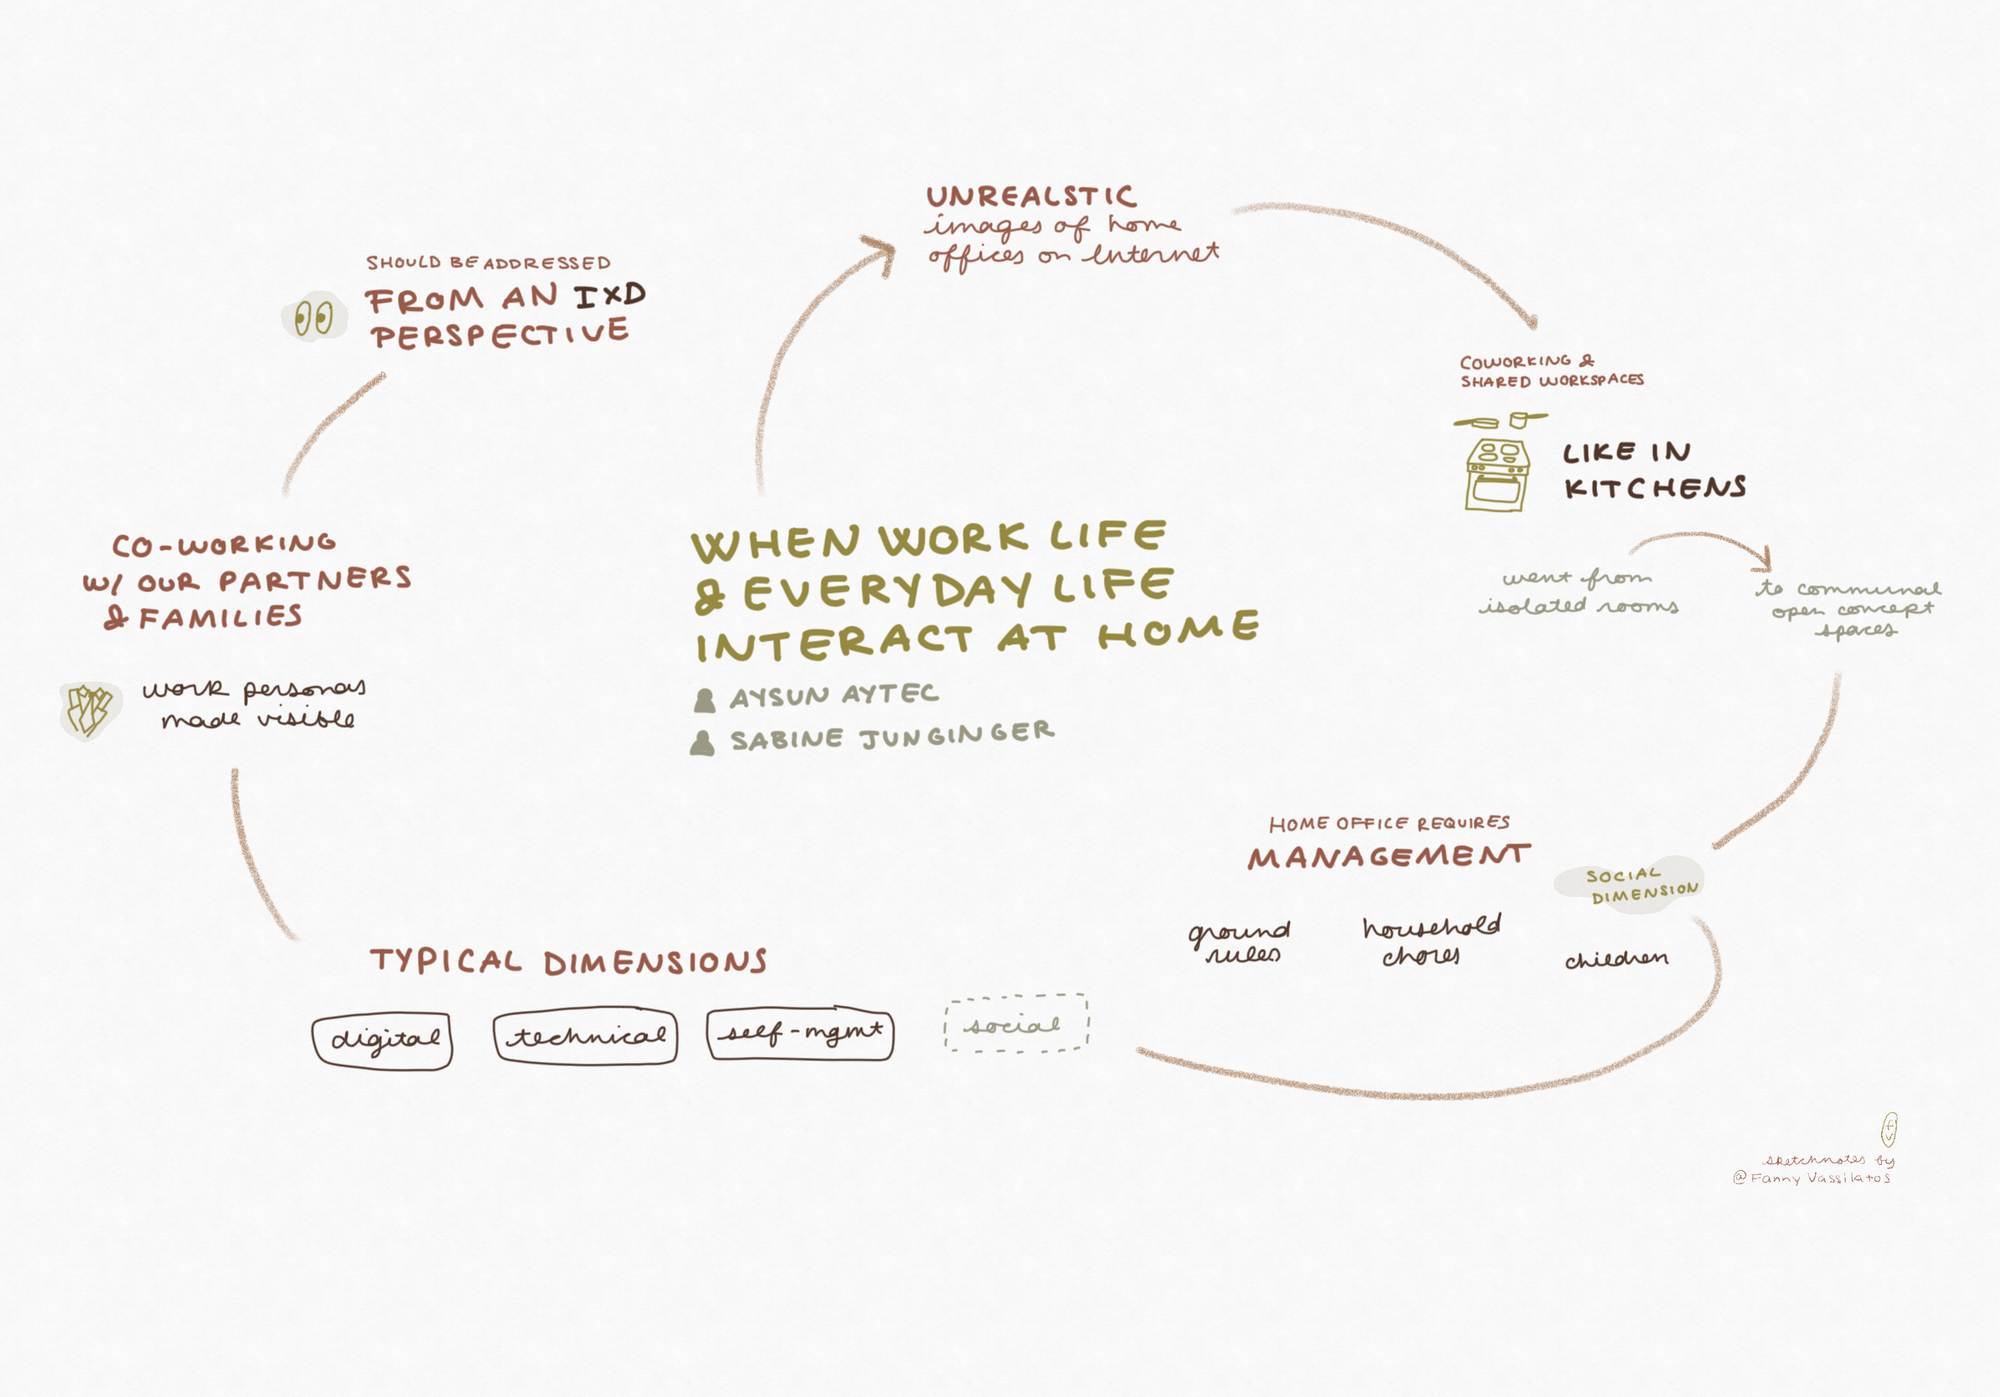 WHEN WORK LIFE
& EVERYDAY LIFE
INTERACT AT HOME
AYSUN AYTEC
SABINE JUNGINGER
UNREALSTIC
images of home
offices on Internet
COWORKING &
SHARED WORKSPACES
LIKE IN
KITCHENS
went from
isolated rooms
to communal
open concept
spaces
HOME OFFICE REQUIRES
MANAGEMENT
SOCIAL
DIMENSION
ground
rules
household
chores
children
TYPICAL DIMENSIONS
digital
technical
self-mgmt
social
CO-WORKING
W/ OUR PARTNERS
& FAMILIES
work personas
made visible
SHOULD BE ADDRESSED
FROM AN IXD
PERSPECTIVE
FV
sketchnotes by
@Fanny Vassilatos